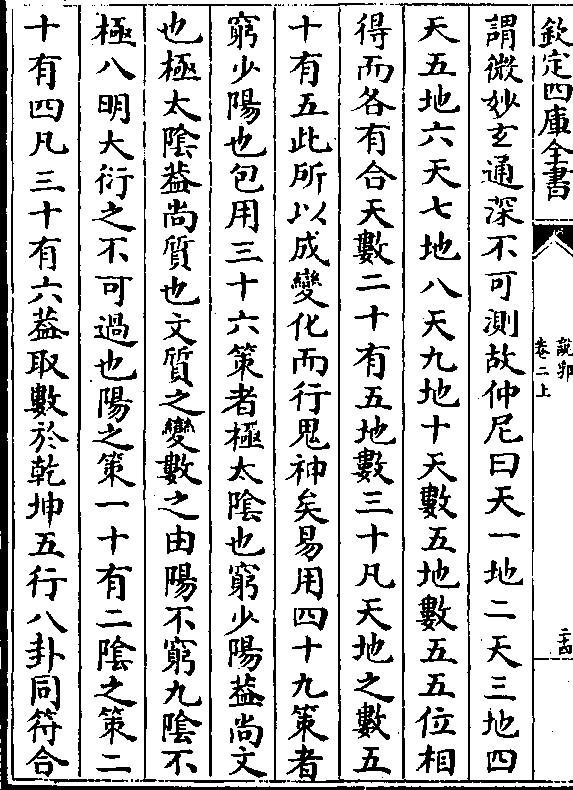 欽定四庫全書
說郛
卷二上
二十四
謂微妙𤣥通深不可測故仲尼曰天一地二天三地四
天五地六天七地八天九地十天數五地數五五位相
得而各有合天數二十有五地數三十凡天地之數五
十有五此所以成變化而行鬼神矣易用四十九策者
窮少陽也包用三十六策者極太陰也窮少陽葢尚文
也極太陰葢尚質也文質之變數之由陽不窮九陰不
極八明大衍之不可過也陽之策一十有二陰之策二
十有四凡三十有六葢取數於乾坤五行八卦同符合